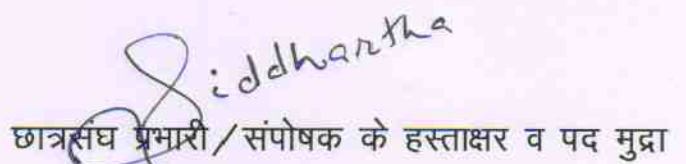 Siddhartha
छात्रसंघ प्रभारी / संपोषक के हस्ताक्षर व पद मुद्रा